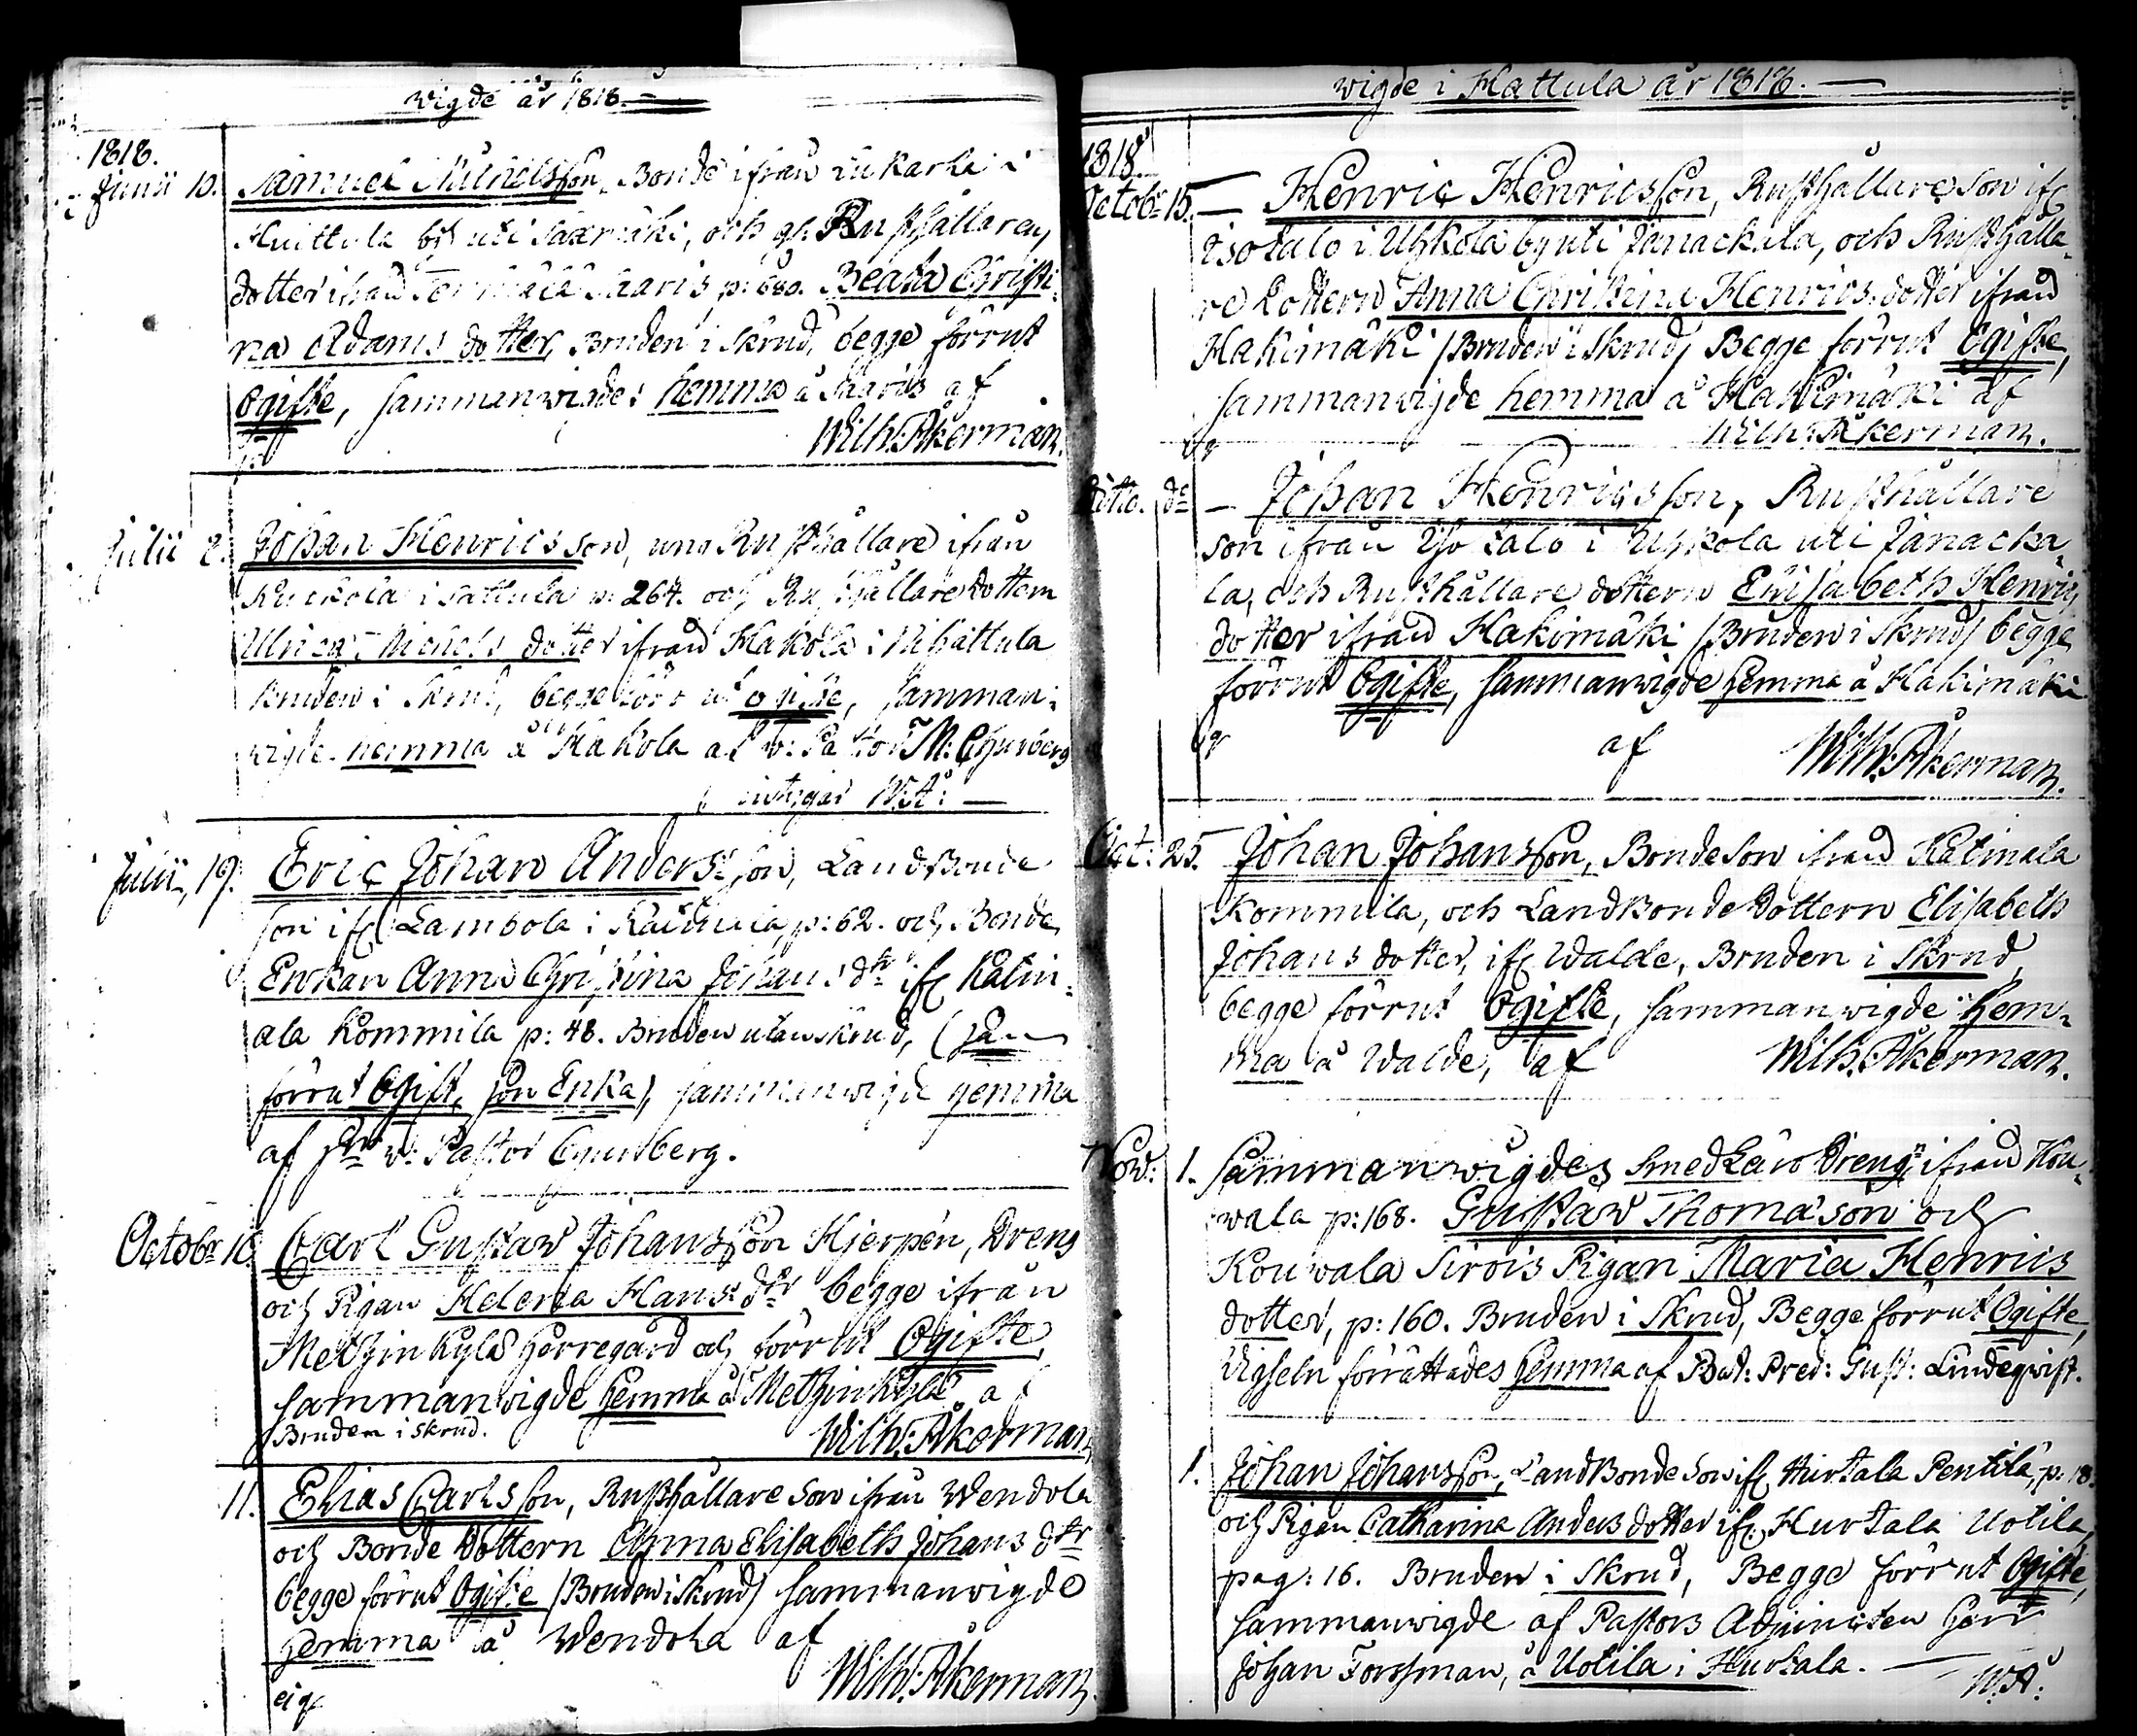 wigde år 1818.
1818.
Junii 10. Samuel Michelsson, Bonde ifrån
Huittula by uti Säxmäki, och gl. Rusthållare
dotter ifrån Saaris, p: 680. Beata Christi-
na Adams dotter, Bruden i skrud, begge förrut
Ogifte, sammanwigde hemma å Saaris af
Wilh: Åkerman.
Julii 2. Johan Henricsson, una Rusthållare ifrån
i Sattula p: 264. och Rusthållare dottern
Ulrica Michels dotter ifrån Hakola i Nihattula
Bruden i skrud, begge förrut ogifte, samman-
wigde hemma å Hakola af v: Pastor M: Churberg
intygar W:Å: —
Julii, 19. Eric Johan Anders: son, Landbonde
son ifr Lambola i p: 62. och Bonde
Enkan Anna Christina Johans dr ifr Katin-
ala Kommila p: 48. Bruden utan skrud, (han
förrut Ogift, hon Enka), sammanwigde hemma
af Hr v: Pastor Churberg.
Octobr 10. Carl Gustav Johansson Hjerpén, Dreng
och Pigan Helena Hans: dtr begge ifrån
Metzinkylä Herregård och förrut Ogifte,
sammanwigde hemma å Metzinkylä af
Bruden i skrud. Wilh: Åkerman
11. Elias Carlsson, Rusthållare son ifrån Wendola
och Bonde Dottern Anna Elisabeth Johans dtr
begge förrut Ogifte /Bruden i skrud/ sammanwigde
hemma å Wendola af
Wilh: Åkerman.
wigde i Hattula år 1818. —
1818
Octobr 15. — Henric Henricsson, Rusthållare son ifr
Isotalo i Uhkola by uti Janackala, och Rusthålla-
re dottern Anna Christina Henrics dotter ifrån
Hakimäki /Bruden i skrud/ Begge förrut Ogifte,
sammanwigde hemma å Hakimäki af
Wilh: Åkerman.
Ditto. de — Johan Henricsson, Rusthållare
son ifrån Iso talo i Uhkola uti Janacka-
la, och Rusthållare dottern Elisabeth Henrics
dotter ifrån Hakimäki /Bruden i skrud/ begge
förrut Ogifte, sammanwigde hemma å Hakimäki
af Wilh: Åkerman.
Oct: 25. Johan Johansson, Bondeson ifrån Katinala
Kommila, och Landbonde Dottern Elisabeth
Johans dotter, ifr Walde, Bruden i skrud,
begge förrut Ogifte, sammanwigde hem-
ma å Walde, af Wilh: Åkerman.
Nov: 1. Sammanwigdes Smed Läro Dreng: ifrån Kou-
wala p: 168. Gustav Thomasson och
Kouwala Sirois Pigan Maria Henrics
dotter, p: 160. Bruden i skrud, Begge förrut Ogifte,
Vigseln förrättades hemma af Bat: Pred: Gust: Lindeqvist.
1. Johan Johansson, Landbonde son ifr Hurtala Pentilä, p. 18.
och Pigan Catharina Anders dotter ifr: Hurtala Uotila,
pag: 16. Bruden i skrud, Begge förrut Ogifte,
sammanwigde af Pastors Adjuncten Herr
Johan Forssman, å Uotila i Hurtala. — W:Å: